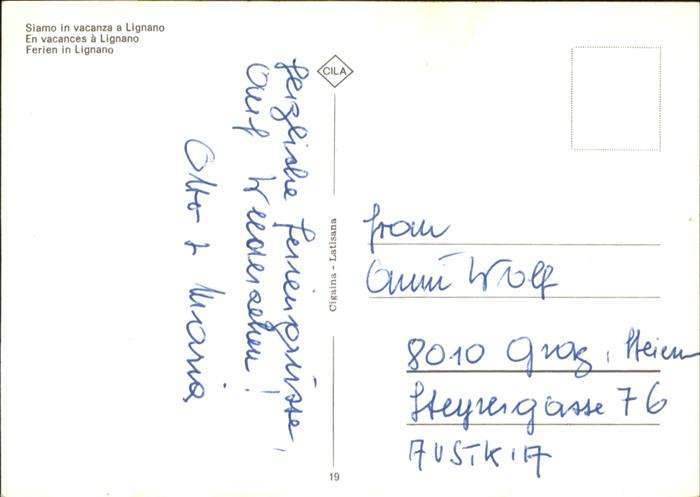 Siamo in vacanza a Lignano
En vacances à Lignano
Ferien in Lignano
CILA
Herzliche Feriengrüsse,
Auf Wiedersehen!
Otto & Maria
Cigaina - Latisana
19
Frau
Anni Wolf
8010 Graz, Steier
Steyrergasse 76
AUSTRIA